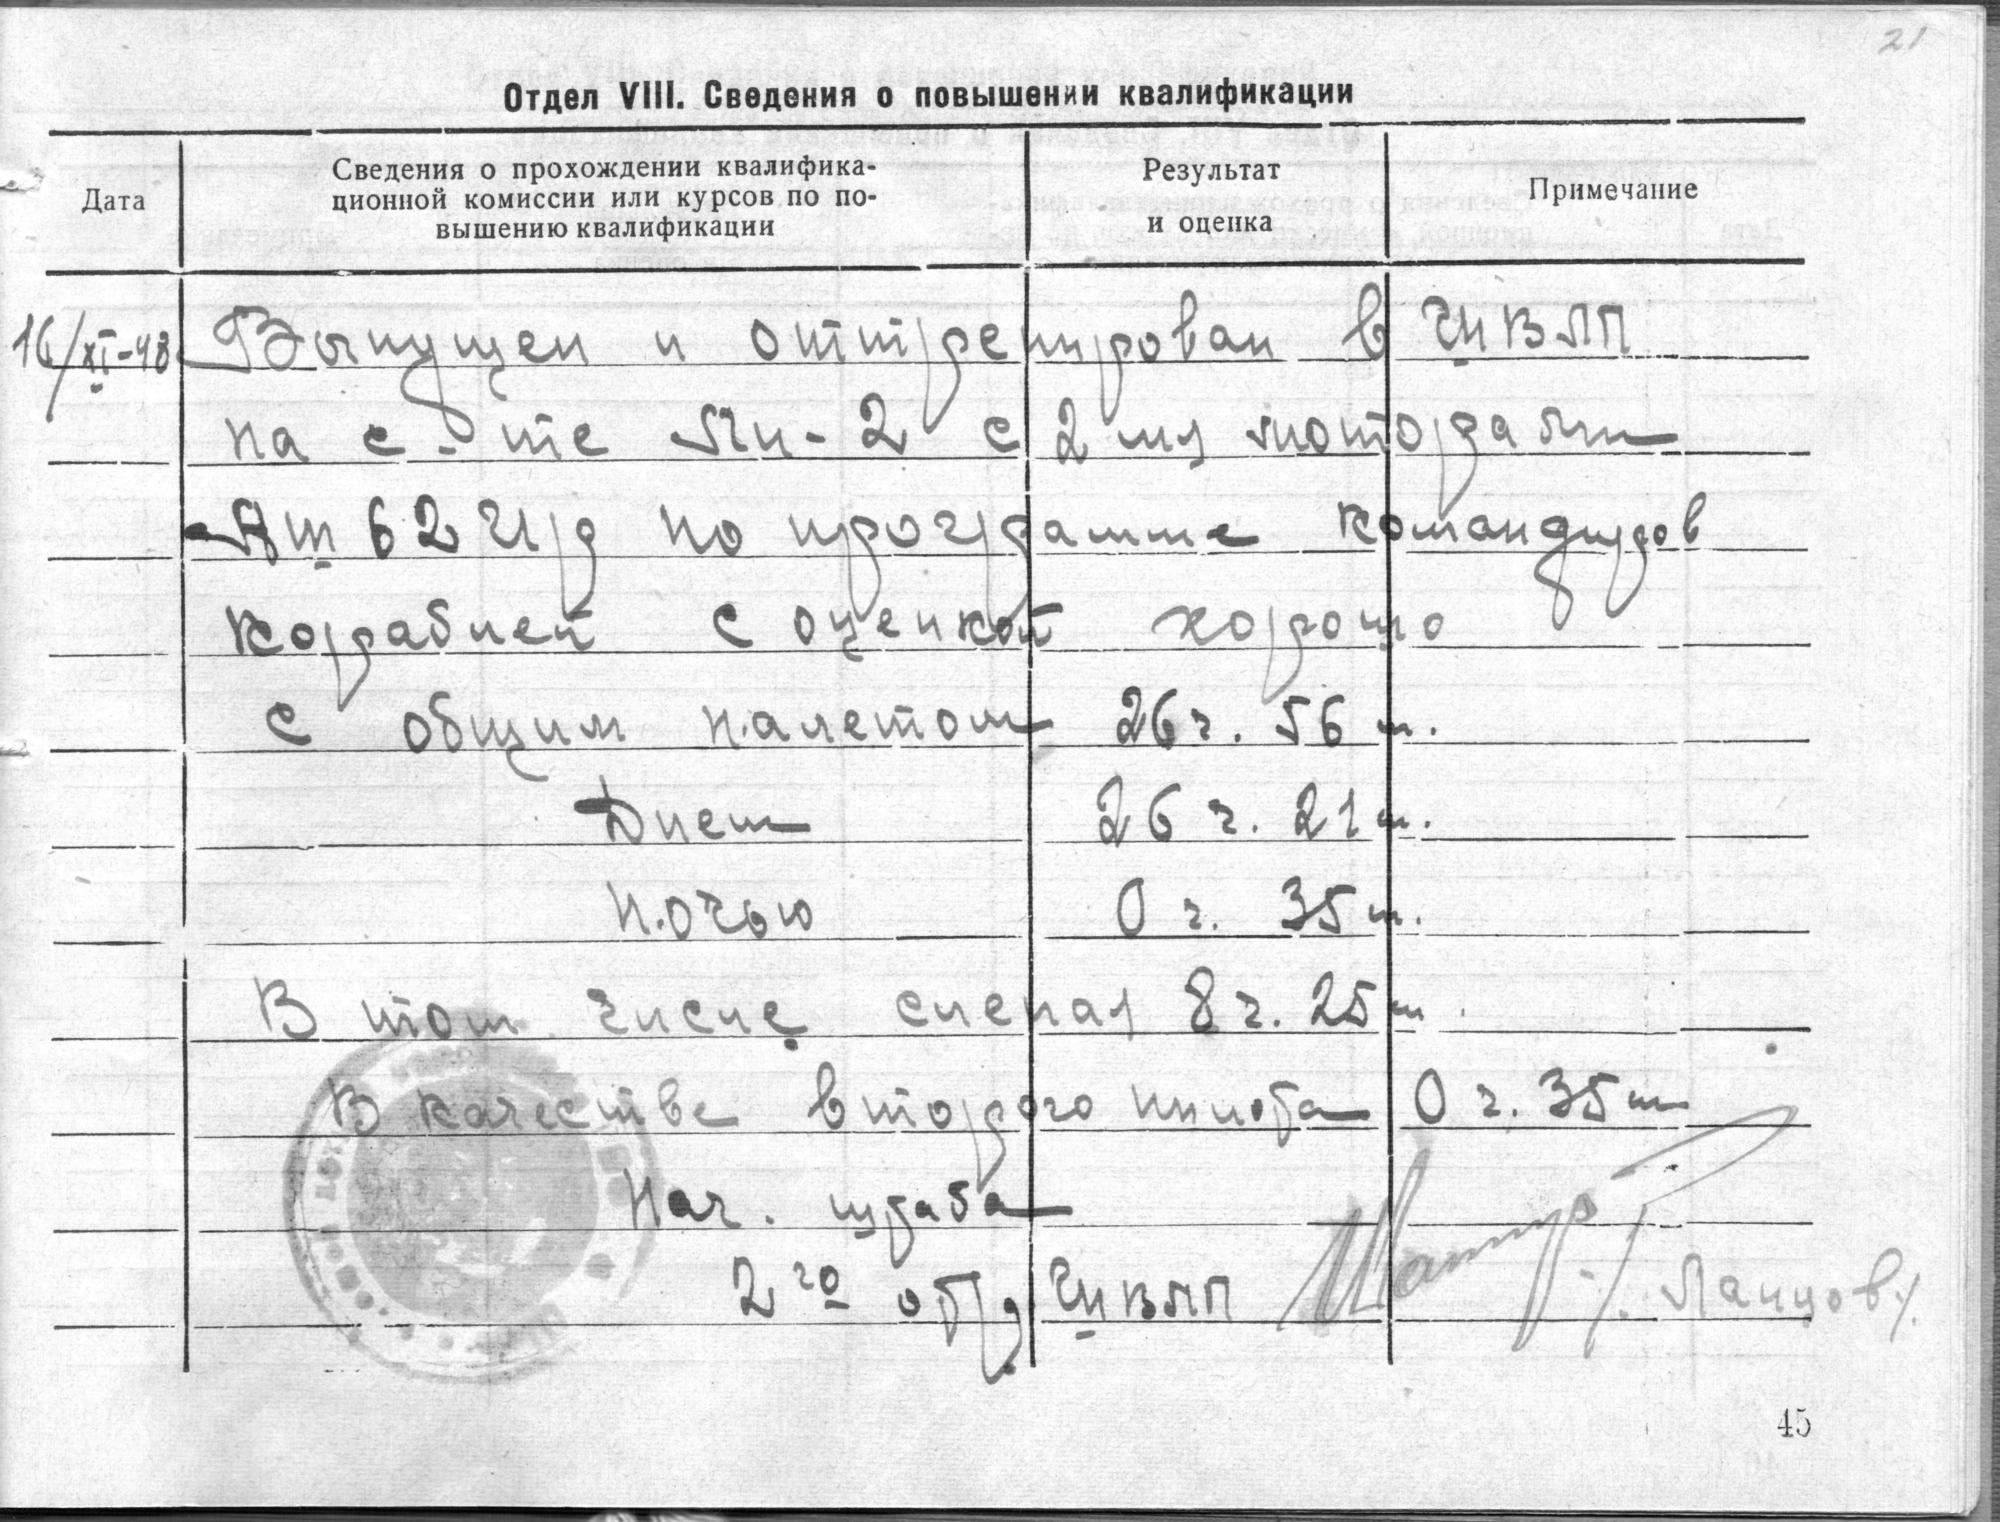 21
Отдел VIII. Сведения о повышении квалификации
Дата
Сведения о прохождении квалифика-
ционной комиссии или курсов по по-
вышению квалификации
Результат
и оценка
Примечание
16/XI-48 Выпущен и оттренирован в ЦИВЛП
на с-те Ли-2 с 2мя моторами
Аш 62 Ир по программе командиров
кораблей с оценкой хорошо
с общим налетом 26 ч. 56 м.
Днем 26 ч. 21 м.
Ночью 0 ч. 35 м.
В том числе слепая 8 ч. 25 м.
В качестве второго пилота 0 ч. 35 м
Нач. штаба
2го ЦИВЛП
45